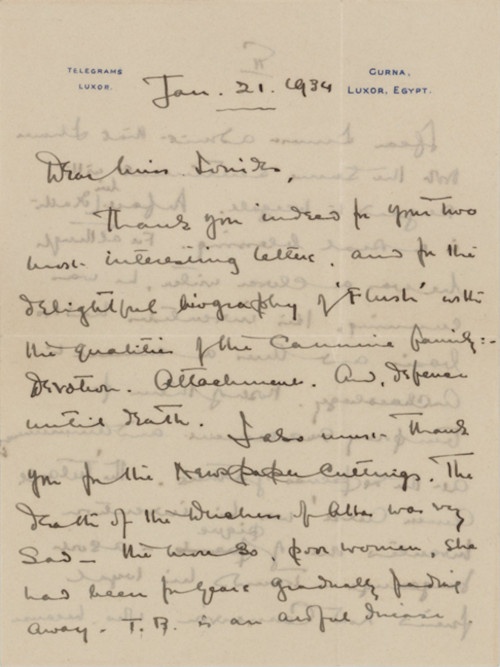 TELEGRAMS
LUXOR.
GURNA,
LUXOR, EGYPT.
Jan. 21. 1934
Dear Miss Ionides,
Thank you indeed for your two
most interesting letters, and for the
delightful biography of 'Flush' with
the qualities of the Cannine family:-
Devotion. Attachment. And, defence
until death. I also must Thank
you for the Newspaper Cuttings. The
death of the Duchess of Alba was very
Sad – the more so, poor women, she
had been for years gradually fading
away – T.B. is an awful disease.